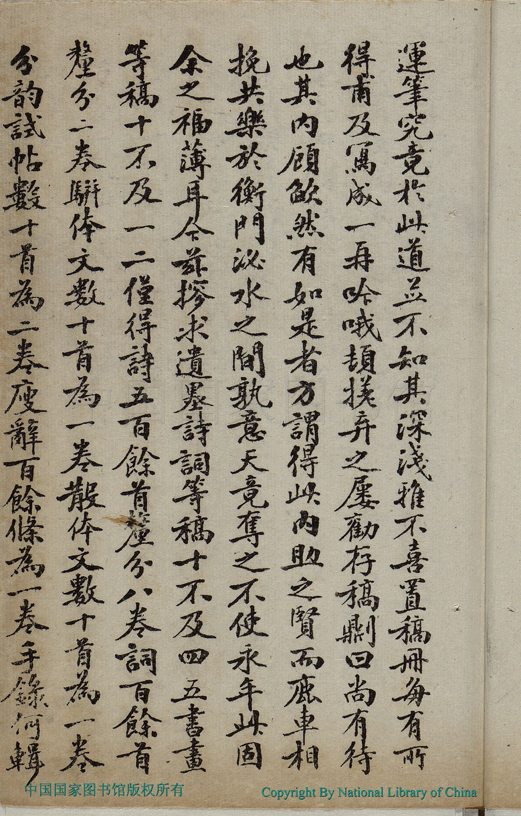 運筆究竟於此道並不知其深淺雅不喜置稿冊每有所
得甫及寫成一再吟哦頡㨪弃之屡勸存稿劘曰尚有待
也其内顧歉然有如是者方謂得此内助之賢而鹿車相
挽共樂於衡門泌水之間孰意天竟奪之不使永年此固
余之福薄耳今茲撏求遺墨詩詞等稿十不及四五書畫
等稿十不及一二僅得詩五百餘首釐分八卷詞百餘首
釐分二卷駢体文數十首為一卷散体文數十首為一卷
分韵試帖數十首為二卷廋辭百餘條為一卷手錄付輯
中国国家图书馆版权所有
Copyright By National Library of China